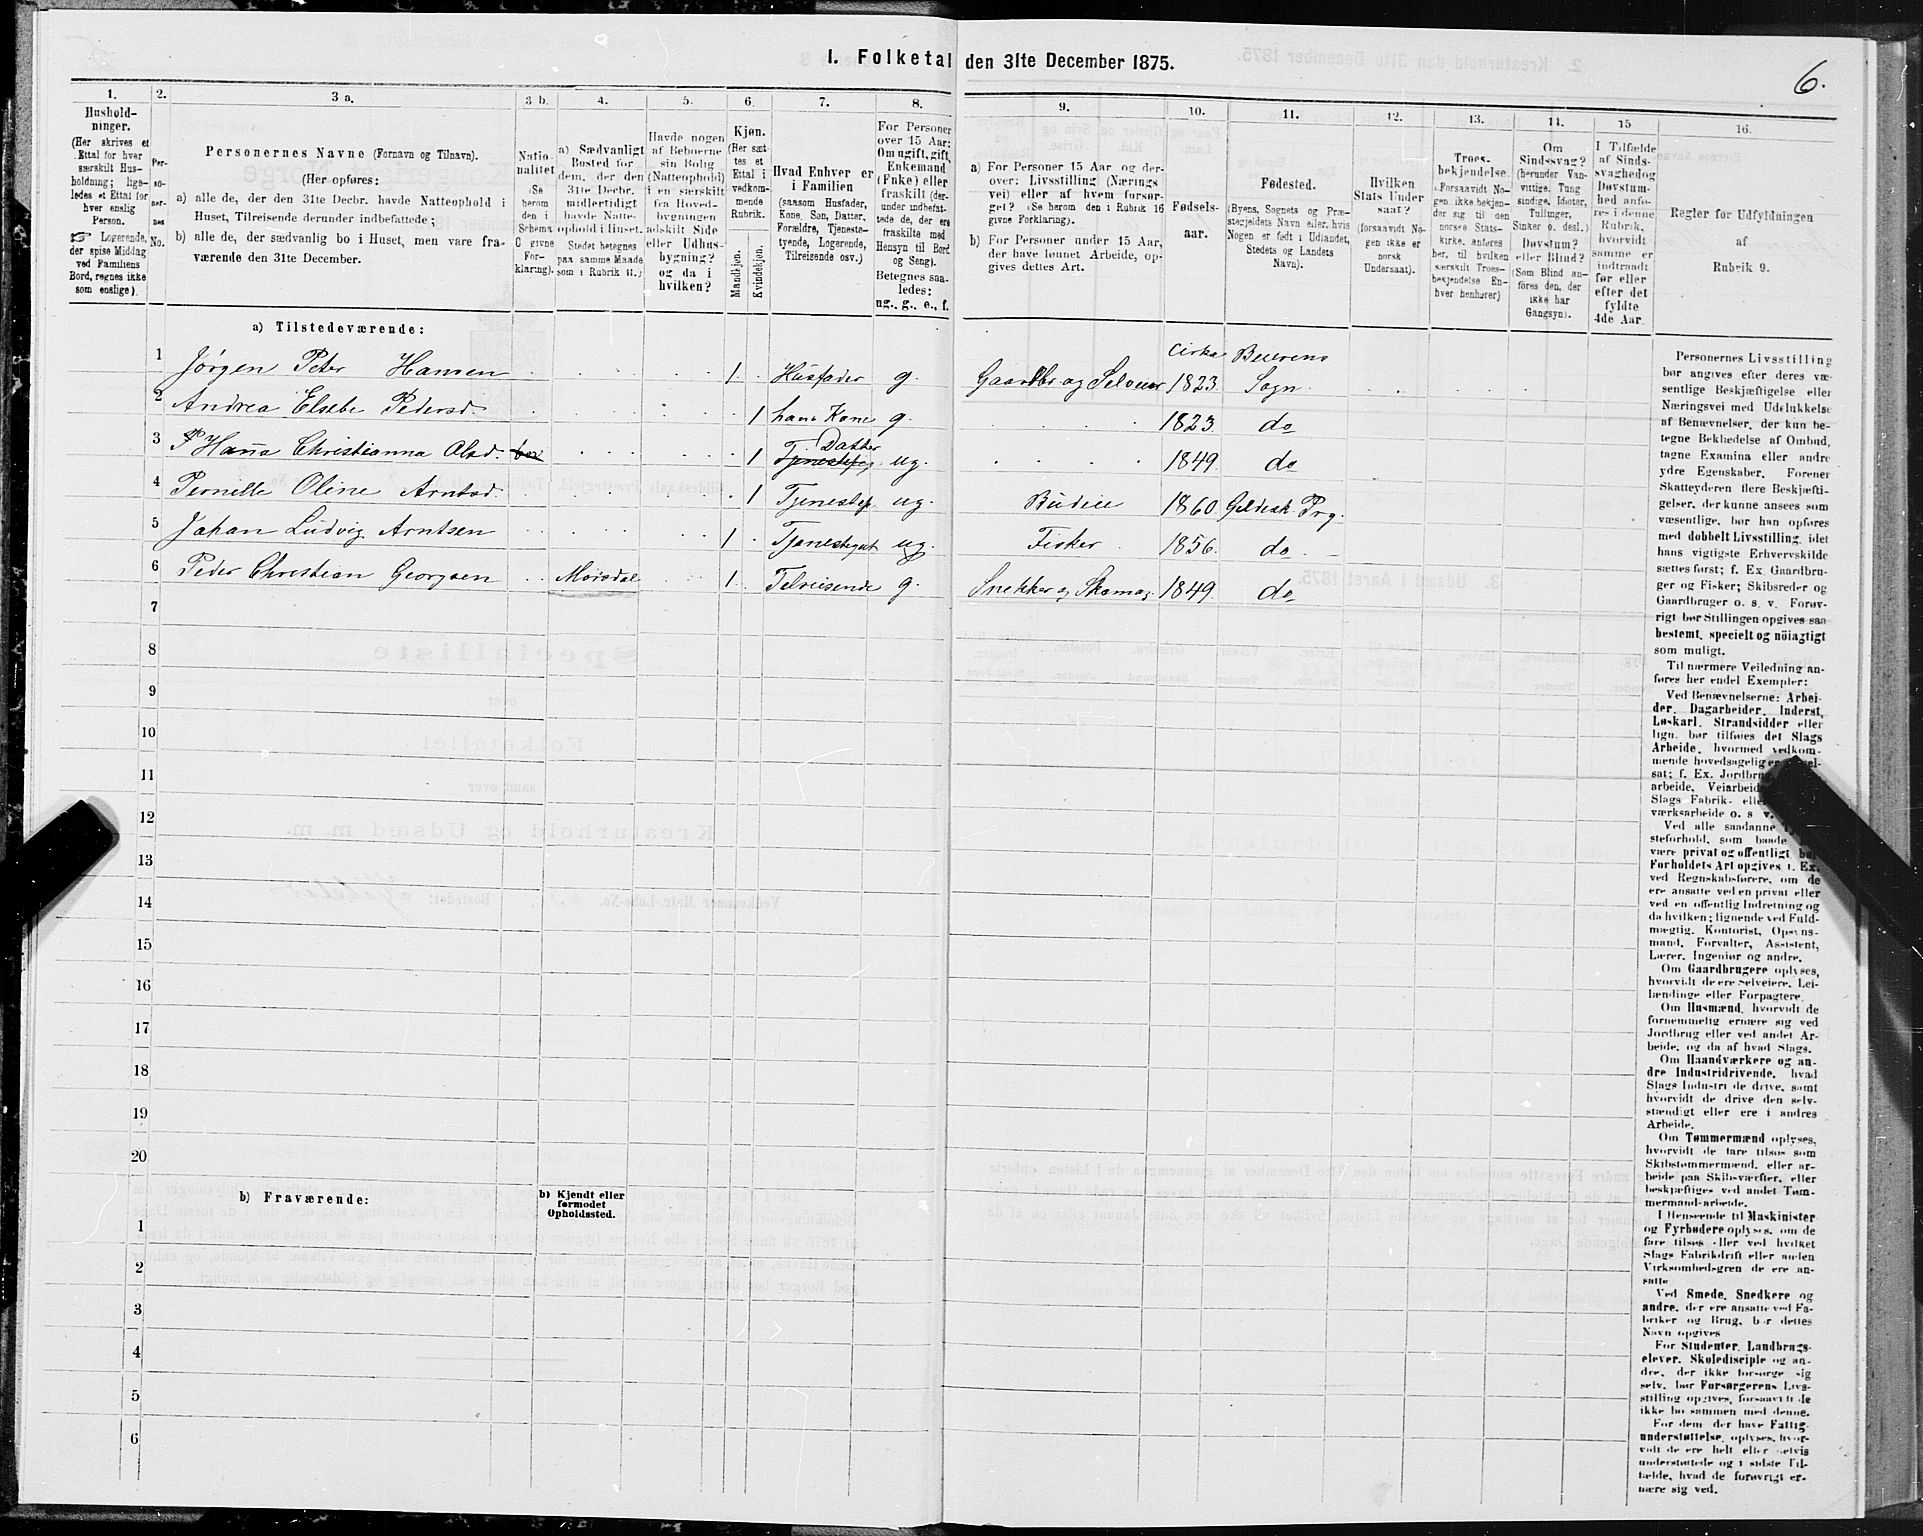 I. Folketal den 31te December 1875.
6.
1.
Hushold-
ninger.
(Her skrives et
Ettal for hver
særskilt Hus-
holdning; lige-
ledes et Ettal for
hver enslig
Person.
☞ Logerende,
der spise Middag
ved Familiens
Bord, regnes ikke
som enslige).
2.
Per-
so-
ner-
nes
No.
3 a.
Personernes Navne (Fornavn og Tilnavn).
(Her opføres:
a) alle de, der den 31te Decbr. havde Natteophold i
Huset, Tilreisende derunder indbefattede;
b) alle de, der sædvanlig bo i Huset, men vare fra-
værende den 31te December.
3 b.
Natio-
nalitet
(Se
herom
den i
Schema
C givne
For-
klaring).
4.
a) Sædvanligt
Bosted for
dem, der den
31te Decbr.
midlertidigt
havde Natte-
ophold i Huset.
Stedet betegnes
paa samme Maade
som i Rubrik 11.)
5.
Havde nogen
af Beboerne
sin Bolig
(Natteophold)
i en særskilt
fra Hoved-
bygningen
adskilt Side
eller Udhus-
bygning?
og da i
hvilken?
6.
Kjøn.
(Her sæt-
tes et
Ettal i
vedkom-
mende
Rubrik.
Mandkjøn.
Kvindekjøn.
7.
Hvad Enhver er
i Familien
(saasom Husfader,
Kone, Søn, Datter,
Forældre, Tjeneste-
tyende, Logerende,
Tilreisende osv.)
8.
For Personer
over 15 Aar:
Om ugift, gift,
Enkemand
(Enke) eller
fraskilt (der-
under indbefat-
tede de, der ere
fraskilte med
Hensyn til Bord
og Seng).
Betegnes saa-
ledes:
ug., g., e., f.
9.
a) For Personer 15 Aar og der-
over: Livsstilling (Nærings
vei) eller af hvem forsør-
get? (Se herom den i Rubrik 16
givne Forklaring).
b) For Personer under 15 Aar,
der have lønnet Arbeide, op-
gives dettes Art.
10.
Fødsels-
aar.
11.
Fødested.
(Byens, Sognets og Præ-
stegjeldets Navn eller, hvis
Nogen er født i Udlandet,
Stedets og Landets
Navn).
12.
Hvilken
Stats Under
saat?
(forsaavidt No-
gen ikke er
norsk
Undersaat).
13.
Troes-
bekjendelse.
(Forsaavidt No-
gen ikke bekjen-
der sig til den
norske Stats-
kirke, anføres
her, til hvilken
særskilt Troes-
bekjendelse En-
hver henhører)
14.
Om
Sindssvag?
(herunder Van-
vittige, Tung
sindige, Idioter,
Tullinger,
Sinker o. desl.)
Døvstum?
eller Blind?
(Som Blind an-
føres den, der
ikke har
Gangsyn).
15
I Tilfælde
af Sinds-
svaghed og
Døvstum-
hed anfø-
res i denne
Rubrik,
hvorvidt
samme er
indtraadt
før eller
efter det
fyldte
4de Aar.
16.
Regler for Udfyldningen
af
Rubrik 9.
a) Tilstedeværende:
1 Jørgen Peter Hansen 1 Husfader g. Gaardbr og Selveier cirka 1823. Beierens Sogn
2 Andrea Elsebe Pedersd. 1 hans Kone g. 1823. do
3 Hana Christianna Olsd. 1 Tjenestepg Datter ug. 1849. do
4 Pernille Oline Arntsd. 1 Tjenestep. ug. Budeie 1860. Gildesk Prg.
5 Johan Ludvig Arntsen 1 Tjenestegut ug. Fisker 1856. do
6 Peder Christian Georgsen Moisdal 1 Tilreisende g. Snekker og Skomag. 1849. do
7
8
9
10
11
12
13
14
15
16
17
18
19
20
b) Fraværende:
b) Kjendt eller
formodet
Opholdssted.
1
2
3
4
5
6
Personernes Livsstilling
bør angives efter deres væ-
sentlige Beskjæftigelse eller
Næringsvei med Udelukkelse
af Benævnelser, der kun be-
tegne Beklædelse af Ombud,
tagne Examina eller andre
ydre Egenskaber. Forener
Skatteyderen flere Beskjæfti-
gelser, der kunne ansees som
væsentlige, bør han opføres
med dobbelt Livsstilling, idet
hans vigtigste Erhvervskilde
sættes først; f. Ex. Gaardbru-
ger og Fisker; Skibsreder og
Gaardbruger o. s. v. Forøv-
rigt bør Stillingen opgives saa
bestemt, specielt og nöiagtigt
som muligt.
Til nærmere Veiledning an-
føres her endel Exempler:
Ved Benævnelserne: Arbei-
der, Dagarbeider, Inderst,
Løskarl, Strandsidder eller
lign. bør tilføres det Slags
Arbeide, hvormed vedkom-
mende hovedsagelig er
sat; f. Ex. Jordbru
arbeide, Veiarbeid
Slags Fabrik- elle
værksarbeide o. s v.
Ved alle saadanne
steforhold, som baade
være privat og offentligt, bør
Forholdets Art opgives, f. Ex.
ved Regnskabsførere, om de
ere ansatte ved en privat eller
ved en offentlig Indretning og
da hvilken; lignende ved Fuld-
mægtig, Kontorist, Opsyns-
mand, Forvalter, Assistent,
Lærer, Ingeniør og andre.
Om Gaardbrugere oplyses,
hvorvidt de ere Selveiere, Lei-
lændinge eller Forpagtere.
Om Husmænd, hvorvidt de
fornemmelig ernære sig ved
Jordbrug eller ved andet Ar-
beide, og da af hvad Slags.
Om Haandværkere og an-
dre Industridrivende, hvad
Slags Industri de drive, samt
hvorvidt de drive den selv-
stændigt eller ere i andres
Arbeide.
Om Tømmermænd oplyses,
hvorvidt de fare tilsøs som
Skibstømmermænd, eller ar-
beide paa Skibsværfter, eller
beskjæftiges ved andet Tøm-
mermand-arbeide.
I Henseende til Maskinister
og Fyrbødere oplyses, om de
fare tilsøs eller ved hvilket
Slags Fabrikdrift eller anden
Virksomhedsgren de ere an-
satte
Ved Smede, Snedkere og
andre, der ere ansatte ved Fa-
briker og Brug, bør dettes
Navn opgives
For Studenter, Landbrugs-
elever, Skoledisciple og an-
dre, der ikke forsørge sig
selv, bør Forsørgerens Livs-
stilling opgives, forsaavidt de
ikke bo sammen med denne.
For dem, der have Fattig-
understøttelse, oplyses, hvor-
vidt de ere helt eller delvis
understøttede og i sidste Til-
fælde, hvad de forøvrigt er-
nære sig ved.